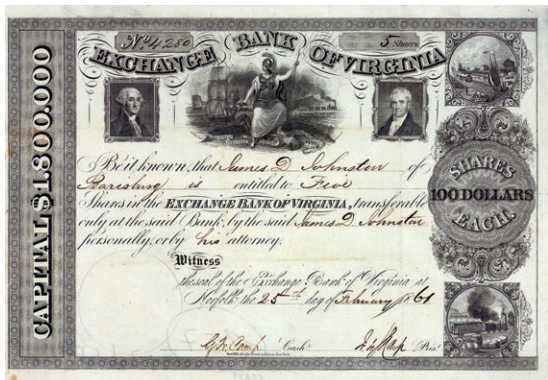 No 4280
5 Shares
EXCHANGE BANK OF VIRGINIA
CAPITAL $1,800,000
Be it known, that James D Johnston of
Pearisburg is entitled to Five
Shares in the EXCHANGE BANK OF VIRGINIA, transferable
only at the said Bank, by the said James D. Johnston
personally, or by his attorney.
Witness
the seal of the Exchange Bank of Virginia at
Norfolk the 25th day of February 1861
Cash.
Pres.
SHARES
100 DOLLARS
EACH.